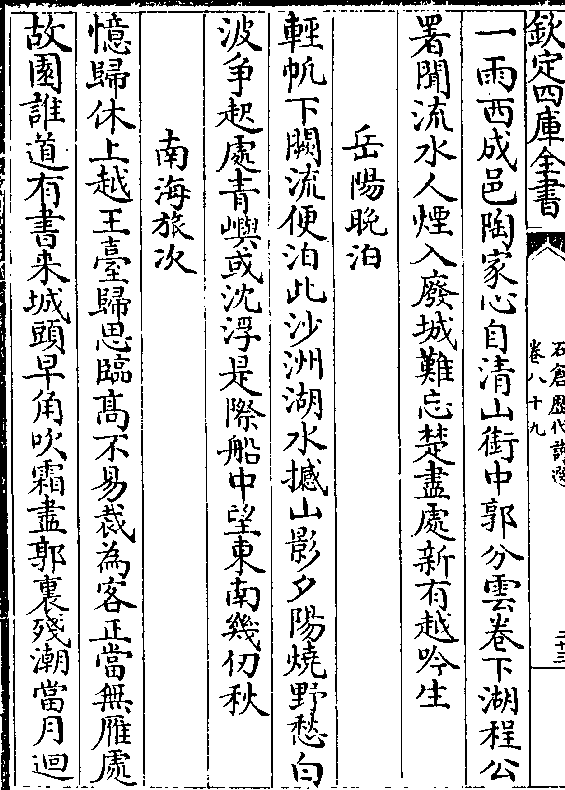 欽定四庫全書
石倉歷代詩選
卷八十九
二十三
一雨西成邑陶家心自清山銜中郭分雲卷下湖程公
署聞流水人煙入廢城難忘楚盡處新有越吟生
岳陽晚泊
輕帆下闕流便泊此沙洲湖水撼山影夕陽燒野愁白
波争起處青嶼或沈浮是際船中望東南幾仞秋
南海旅次
憶歸休上越王臺歸思臨髙不易裁為客正當無雁處
故園誰道有書来城頭早角吹霜盡郭裏殘潮當月迴